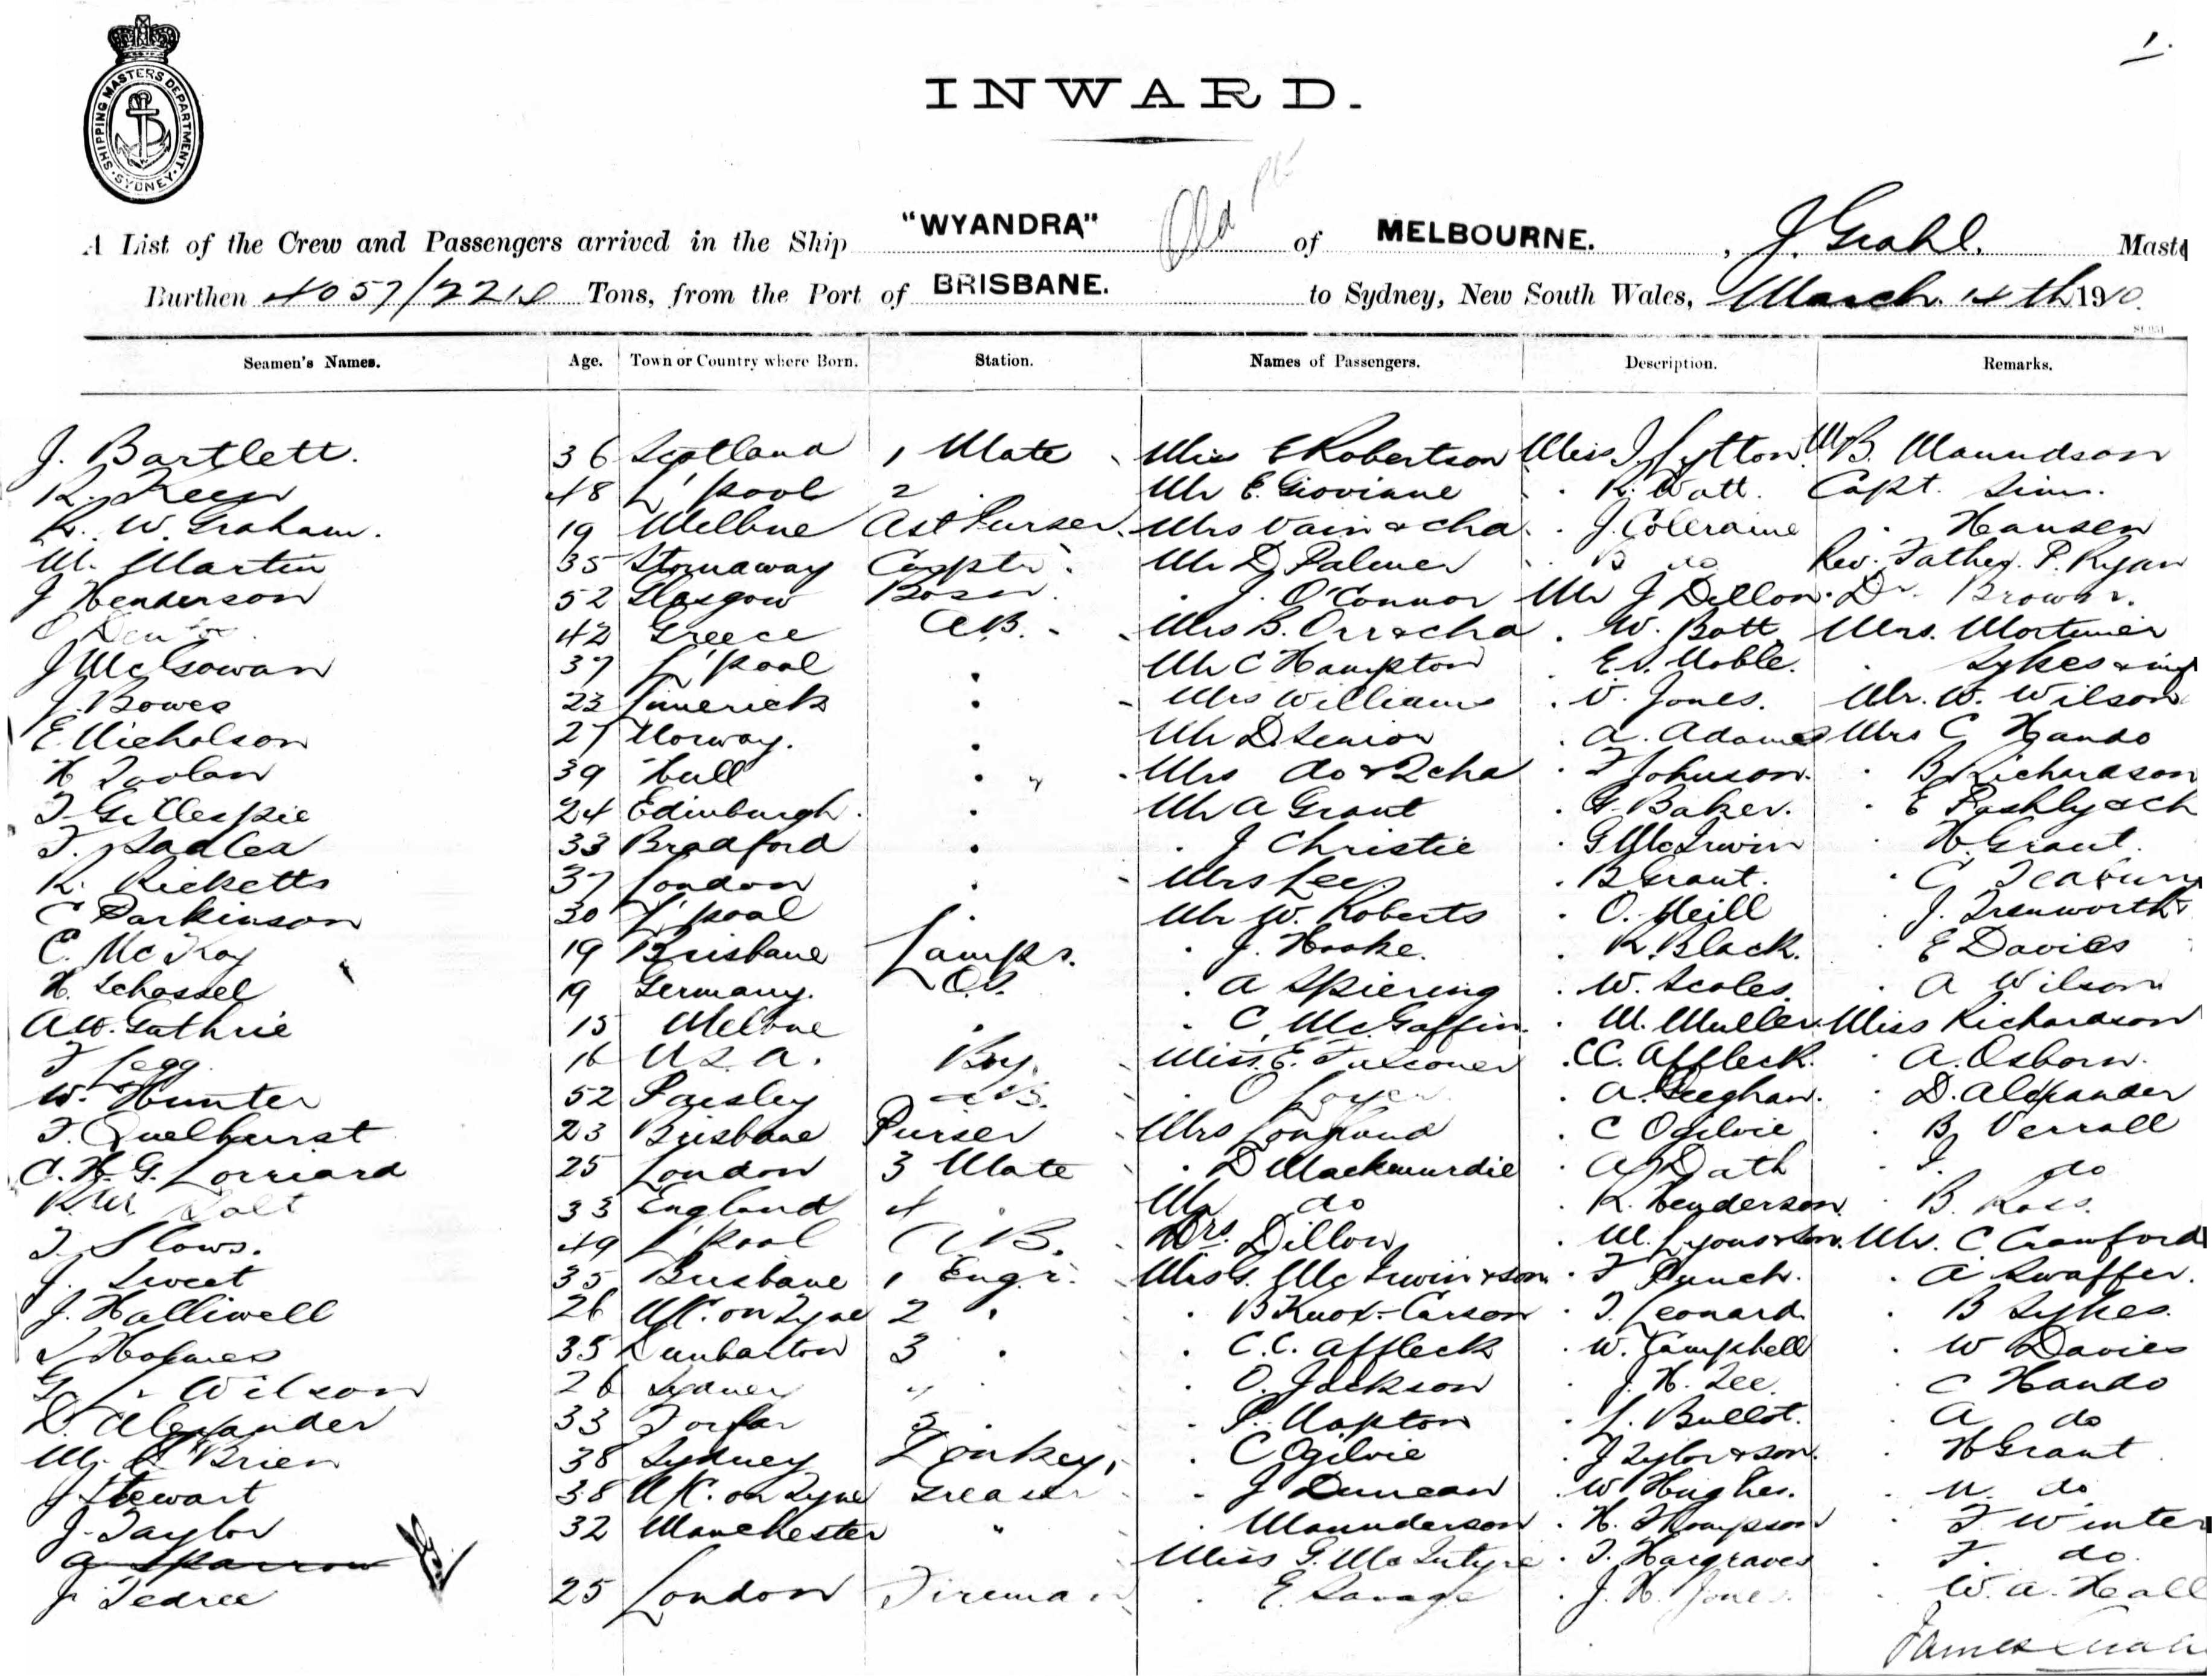 1.
SHIPPING MASTERS DEPARTMENT. SYDNEY.
INWARD.
A List of the Crew and Passengers arrived in the Ship "WYANDRA" Old of MELBOURNE. , J. Grahl. Maste
Burthen 4057/ Tons, from the Port of BRISBANE. to Sydney, New South Wales, March 14th 1910.
Seamen's Names. Age. Town or Country where Born. Station. Names of Passengers. Description. Remarks.
J. Bartlett. 36 Scotland 1 Mate Miss E Robertson Miss J. Lytton Mr B. Maundson
R. 48 L'pool 2 . Mr E. Gioviane . R. Watt. Capt. Sim.
R. W. Graham. 19 Melbne Ast Purser. Mrs Vain & cha . J. Coleraine . Hansen
M. Martin 35 Stornaway Carptr. Mr D. Palmer . B do Rev. Father. P. Ryan
J Henderson 52 Glasgow Bosn. . J. O'Connor Mr J Dillon. Dr. Brown.
42 Greece A.B. Mrs B. Orr & cha . W. Bott. Mrs. Mortimer
J McGowan 37 L'pool . Mr C Hampton . E. Noble. . Sykes & inf
J. Bowes 23 Limerick . Mrs Williams . V. Jones. Mr. W. Wilson
E. Nicholson 27 Norway. . Mr D. Senior . A. Adams Mrs C Hando
H Toolan 39 Hull . " Mrs do & 2 cha . F Johnson. . B Richardson
T. Gillespie 24 Edinburgh. . Mr A Grant . G. Baker. . E Pashly & ch
T. Sadler 33 Bradford . . J Christie . G McIrwin . H. Grant.
R. Ricketts 37 London . Mrs Lee. . B Grant. . C.
C Parkinson 30 L'pool . Mr W. Roberts . O. Neill . J. Trenworth
C. McKay 19 Brisbane Lamps. . J. Hooke. . R. Black. . E Davies
H. Schossel 19 Germany. O.S. . A Spiering . W. Scoles. . A Wilson
A.W. Guthrie 15 Melbne . . C. McGaffin. . M. Muller. Miss Richardson
F Legg 16 U.S.A. Boy. Miss. E. Falconer . C.C. Affleck. . A. Osborn.
W. Hunter 52 Paisley A.B. . O . A. Geeghan. . D. Alexander
T. Quelhurst 23 Brisbane Purser Mrs Longland . C Ogilvie . B. Verrall
C. H. G. Lorriard 25 London 3 Mate . D Mackmurdie . A Dath . J. do
R.W. Dalt 33 England 4 . Mr do . R. Henderson. . B. Ross.
T. Slows. 49 L'pool A.B. Mrs. Dillon . M. Lyons & son. Mr. C. Crawford
J. Sweet 35 Brisbane 1 Engr. Mrs S. McIrwin & son . F Punch. . A Swaffer.
J. Halliwell 26 N/C. on Tyne 2 . . B Knox-Carson . T. Leonard . B Sykes.
Holmes 35 Dunbarton 3 . . C.C. Affleck . W. Campbell . W Davies
G. Wilson 26 Sydney " . . O. Jackson . J. H. Lee. . C Hando
D. Alexander 33 Forfar 5 . . P. Napton . L. Bullot. . A do
M. O'Brien 38 Sydney Donkey, . C Ogilvie . J Tylor & son. . H Grant
J Stewart 38 N/C. on Tyne Greaser . J Duncan . W Hughes. . N. do
J. Taylor 32 Manchester " . Maunderson . H. Thompson . F Winter
A Sparrow Miss G. McIntyre . T. Hargraves . F. do.
J. Tedree 25 London Fireman . E. Savage . J. H. Jones. . W. A. Hall
James